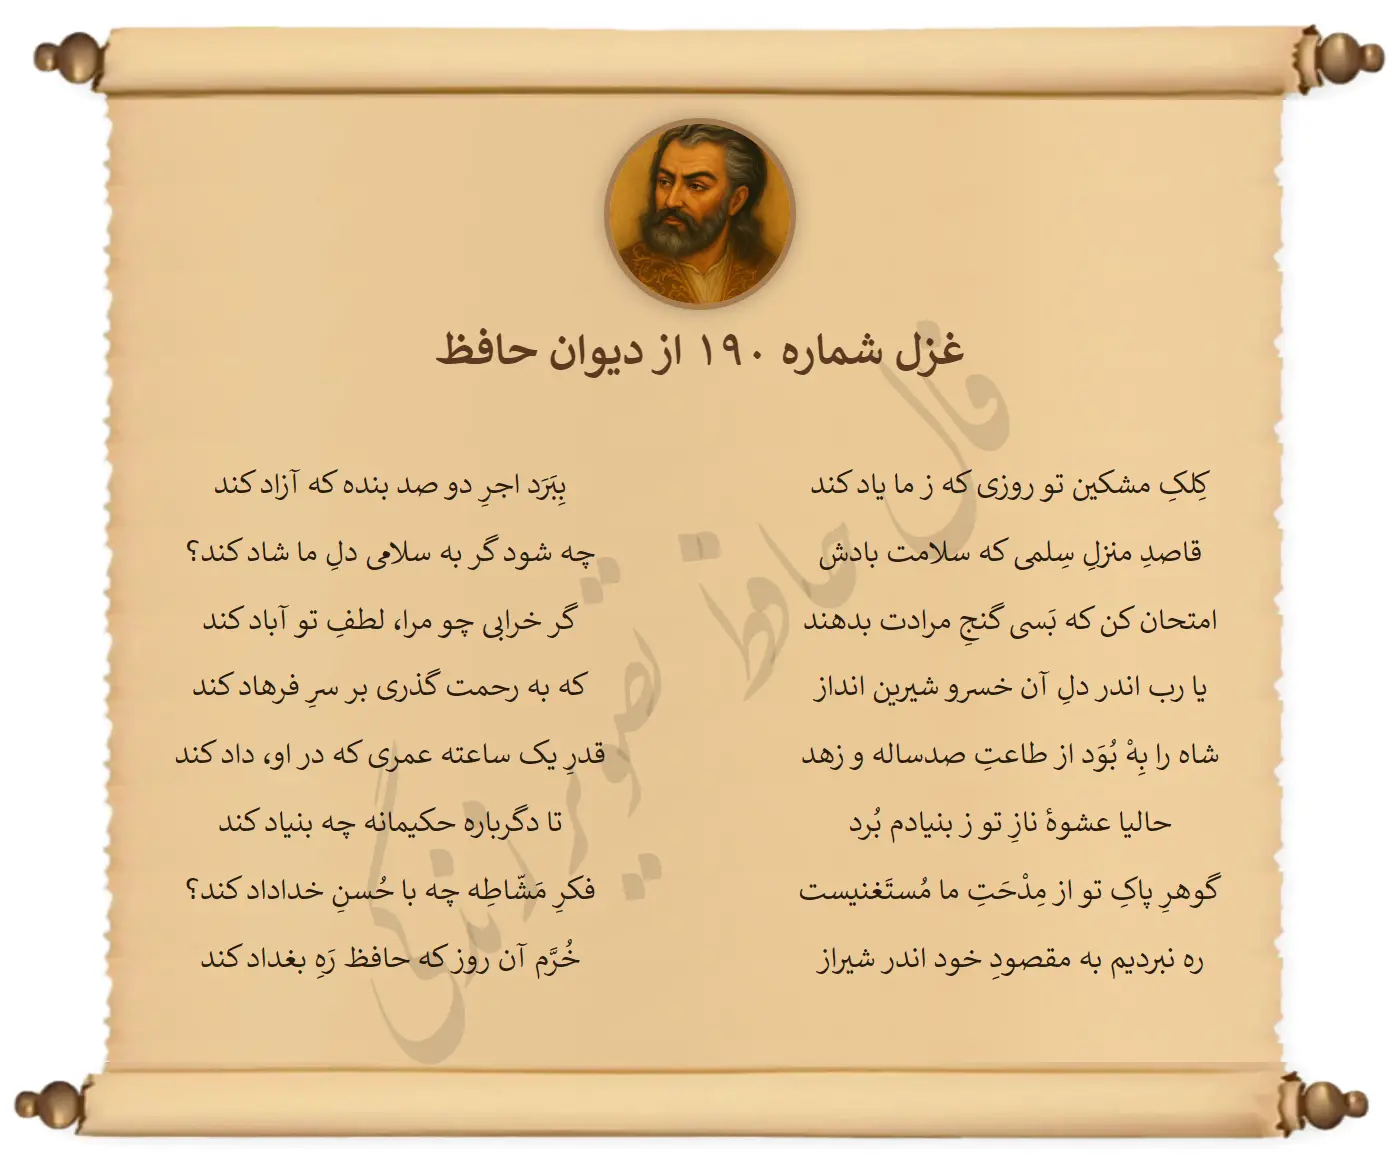 غزل شماره ۱۹۰ از دیوان حافظ
کِلکِ مشکین تو روزی که ز ما یاد کند
بِبَرَد اجرِ دو صد بنده که آزاد کند
قاصدِ منزلِ سِلمی که سلامت بادش
چه شود گر به سلامی دلِ ما شاد کند؟
امتحان کن که بَسی گنجِ مرادت بدهند
گر خرابی چو مرا، لطفِ تو آباد کند
یا رب اندر دلِ آن خسرو شیرین انداز
که به رحمت گذری بر سرِ فرهاد کند
شاه را بِهْ بُوَد از طاعتِ صدساله و زهد
قدرِ یک ساعته عمری که در او، داد کند
حالیا عشوهٔ نازِ تو ز بنیادم بُرد
تا دگرباره حکیمانه چه بنیاد کند
گوهرِ پاکِ تو از مِدْحَتِ ما مُستَغنیست
فکرِ مَشّاطِه چه با حُسنِ خداداد کند؟
ره نبردیم به مقصودِ خود اندر شیراز
خُرَّم آن روز که حافظ رَهِ بغداد کند
فال حافظ تصویر زندگی